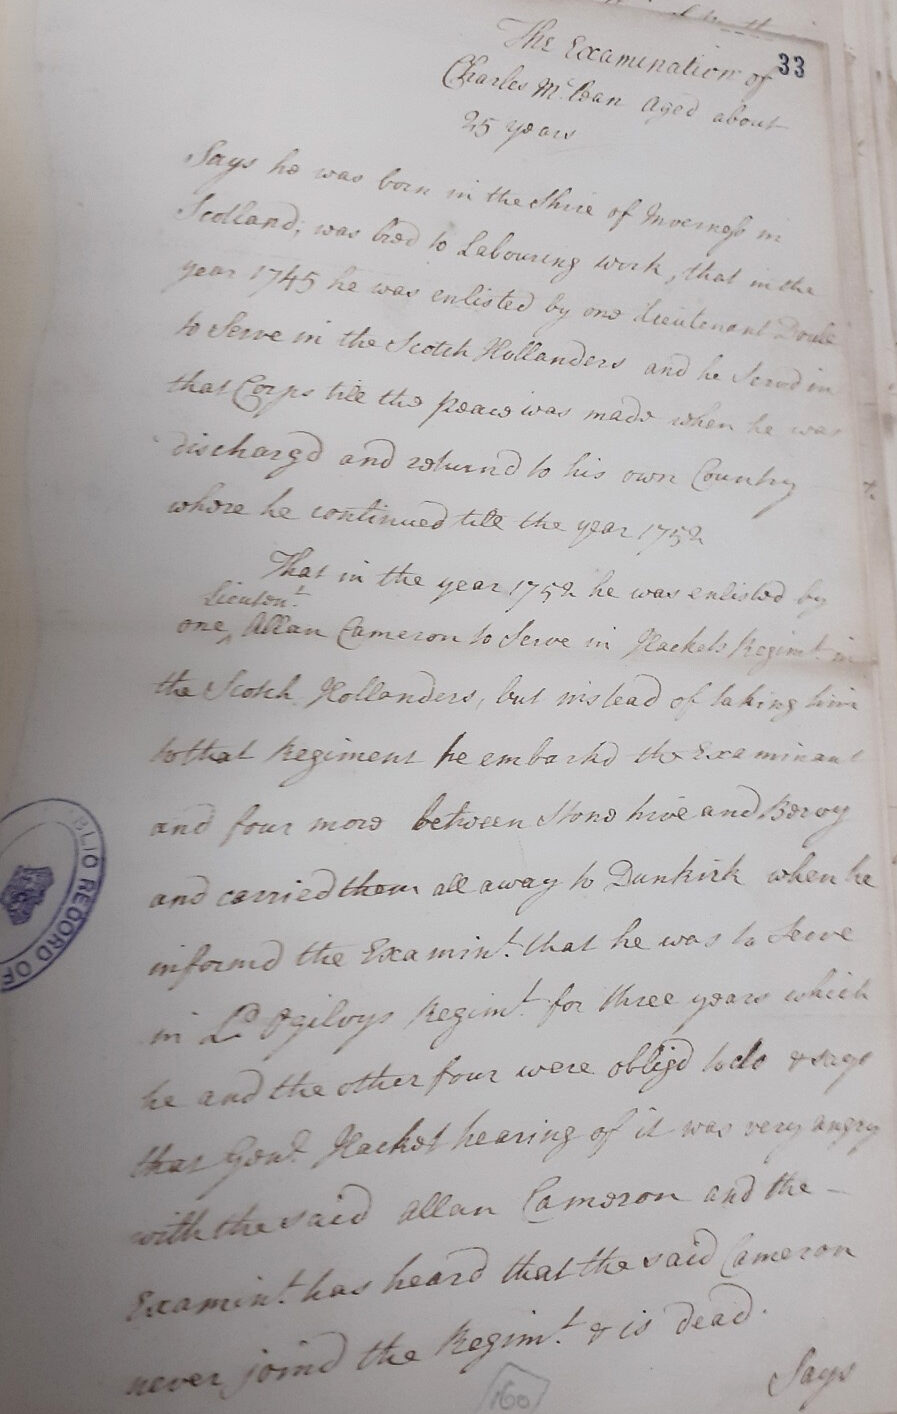 33
The Examination of
Charles McLean Aged about
25 years
Says he was born in the Shire of Inverness in
Scotland; was bred to Labouring work, that in the
year 1745 he was enlisted by one Lieutenant
to Serve in the Scotch Hollanders and he Servd in
that Corps till the peace was made when he was
dischargd and returnd to his own Country
where he continued till the year 1752
That in the year 1752 he was enlisted by
Lieutent.
one Allan Cameron to Serve in Hackets Regimt. in
the Scotch Hollanders, but instead of taking him
to that Regiment he embarkd the Examinant
and four more between Stone hive and Bervy
and carried them all away to Dunkirk when he
informd the Examint. that he was to Serve
in Ld. Ogilvys Regimt. for three years which
he and the other four were obligd to do & says
that Genl. Hacket hearing of it was very angry
with the said Allan Cameron and the -
Examint. has heard that the said Cameron
never joind the Regimt. & is dead.
Says
160
BLIC RECORD OF